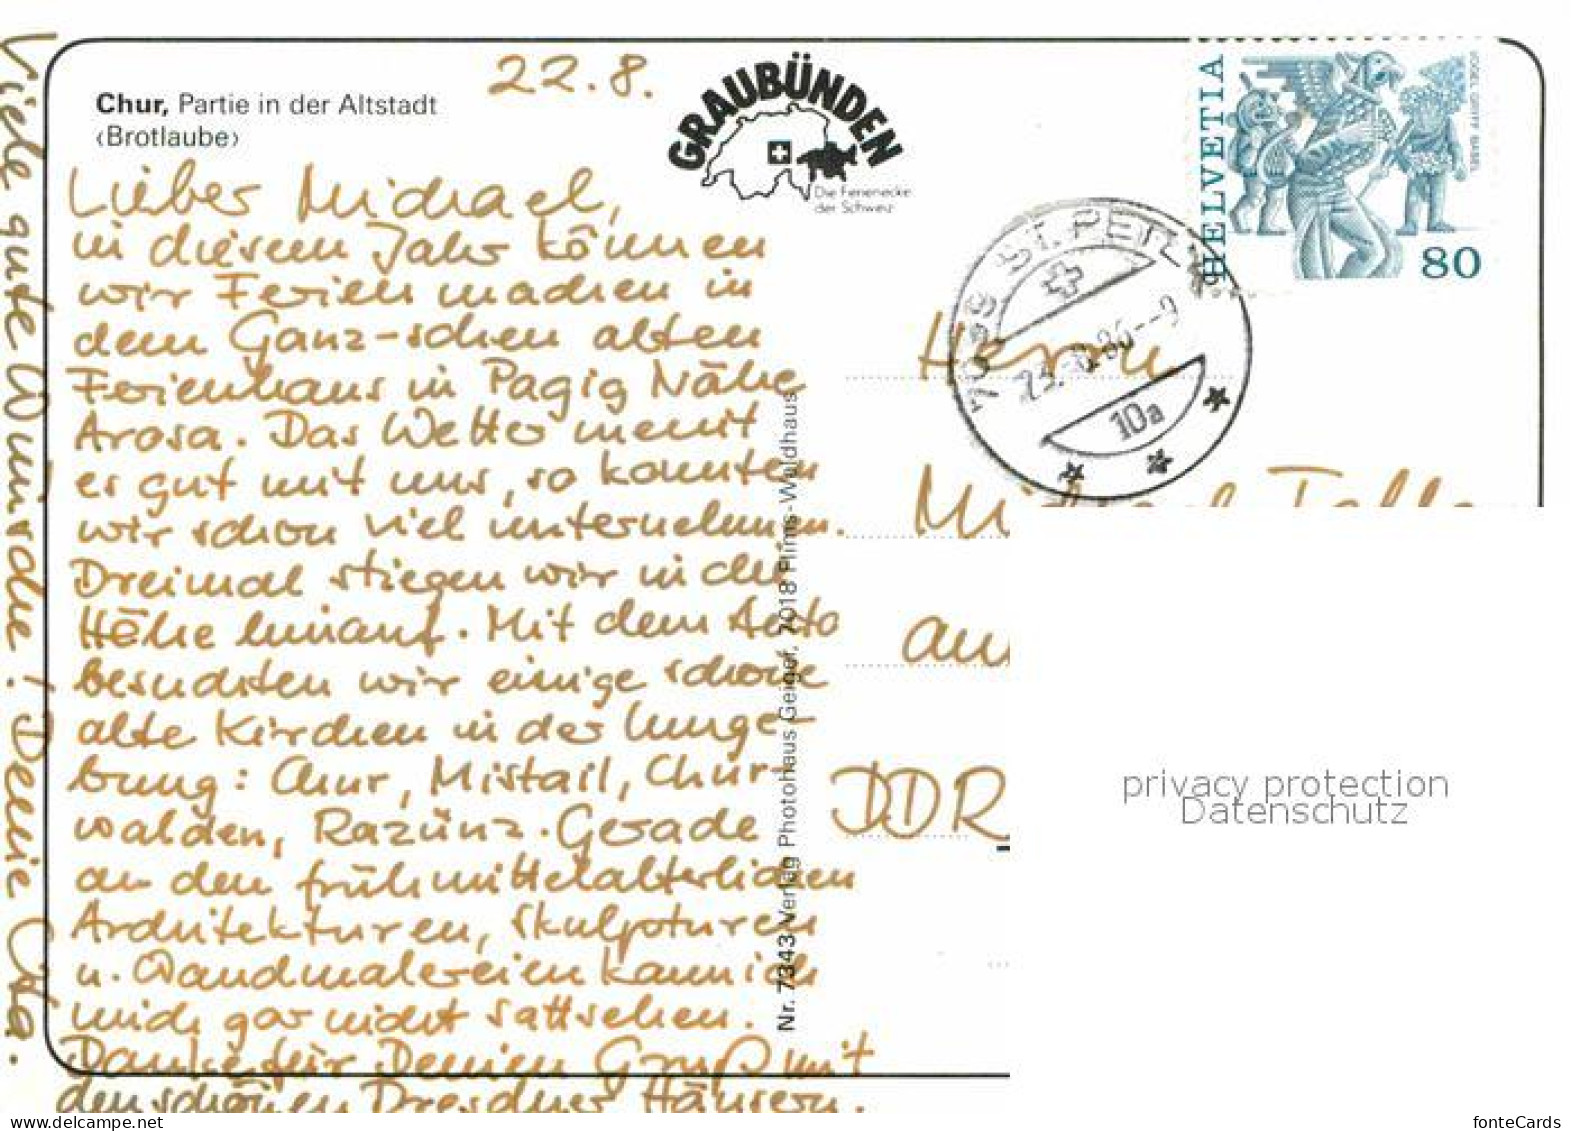 22.8.
Chur, Partie in der Altstadt
‹Brotlaube›
GRAUBÜNDEN
Die Ferienecke
der Schweiz
HELVETIA
VOGEL GRYFF BASEL
80
7099 ST. PETER
23.-8.86--9
10a
Lieber Michael,
in diesem Jahr können
wir Ferien machen in
dem Ganz-schen alten
Ferienhaus in Pagig Nähe
Arosa. Das Wetter meint
es gut mit uns, so konnten
wir schon viel unternehmen.
Dreimal stiegen wir in die
Höhe hinauf. Mit dem Auto
besuchten wir einige schöne
alte Kirchen in der Umge-
bung: Chur, Mistail, Chur-
walden, Razünz. Gerade
an den frühmittelalterlichen
Architekturen, Skulpturen
u. Wandmalereien kann ich
mich gar nicht sattsehen.
Danke für Deinen Gruß mit
den schönen Dresdner Häusern.
Viele gute Wünsche! Deine
Nr. 7343 Verlag Photohaus Geiger, 7018 Flims-Waldhaus
Herrn
Michael
DDR
privacy protection
Datenschutz
www.delcampe.net
fonteCards